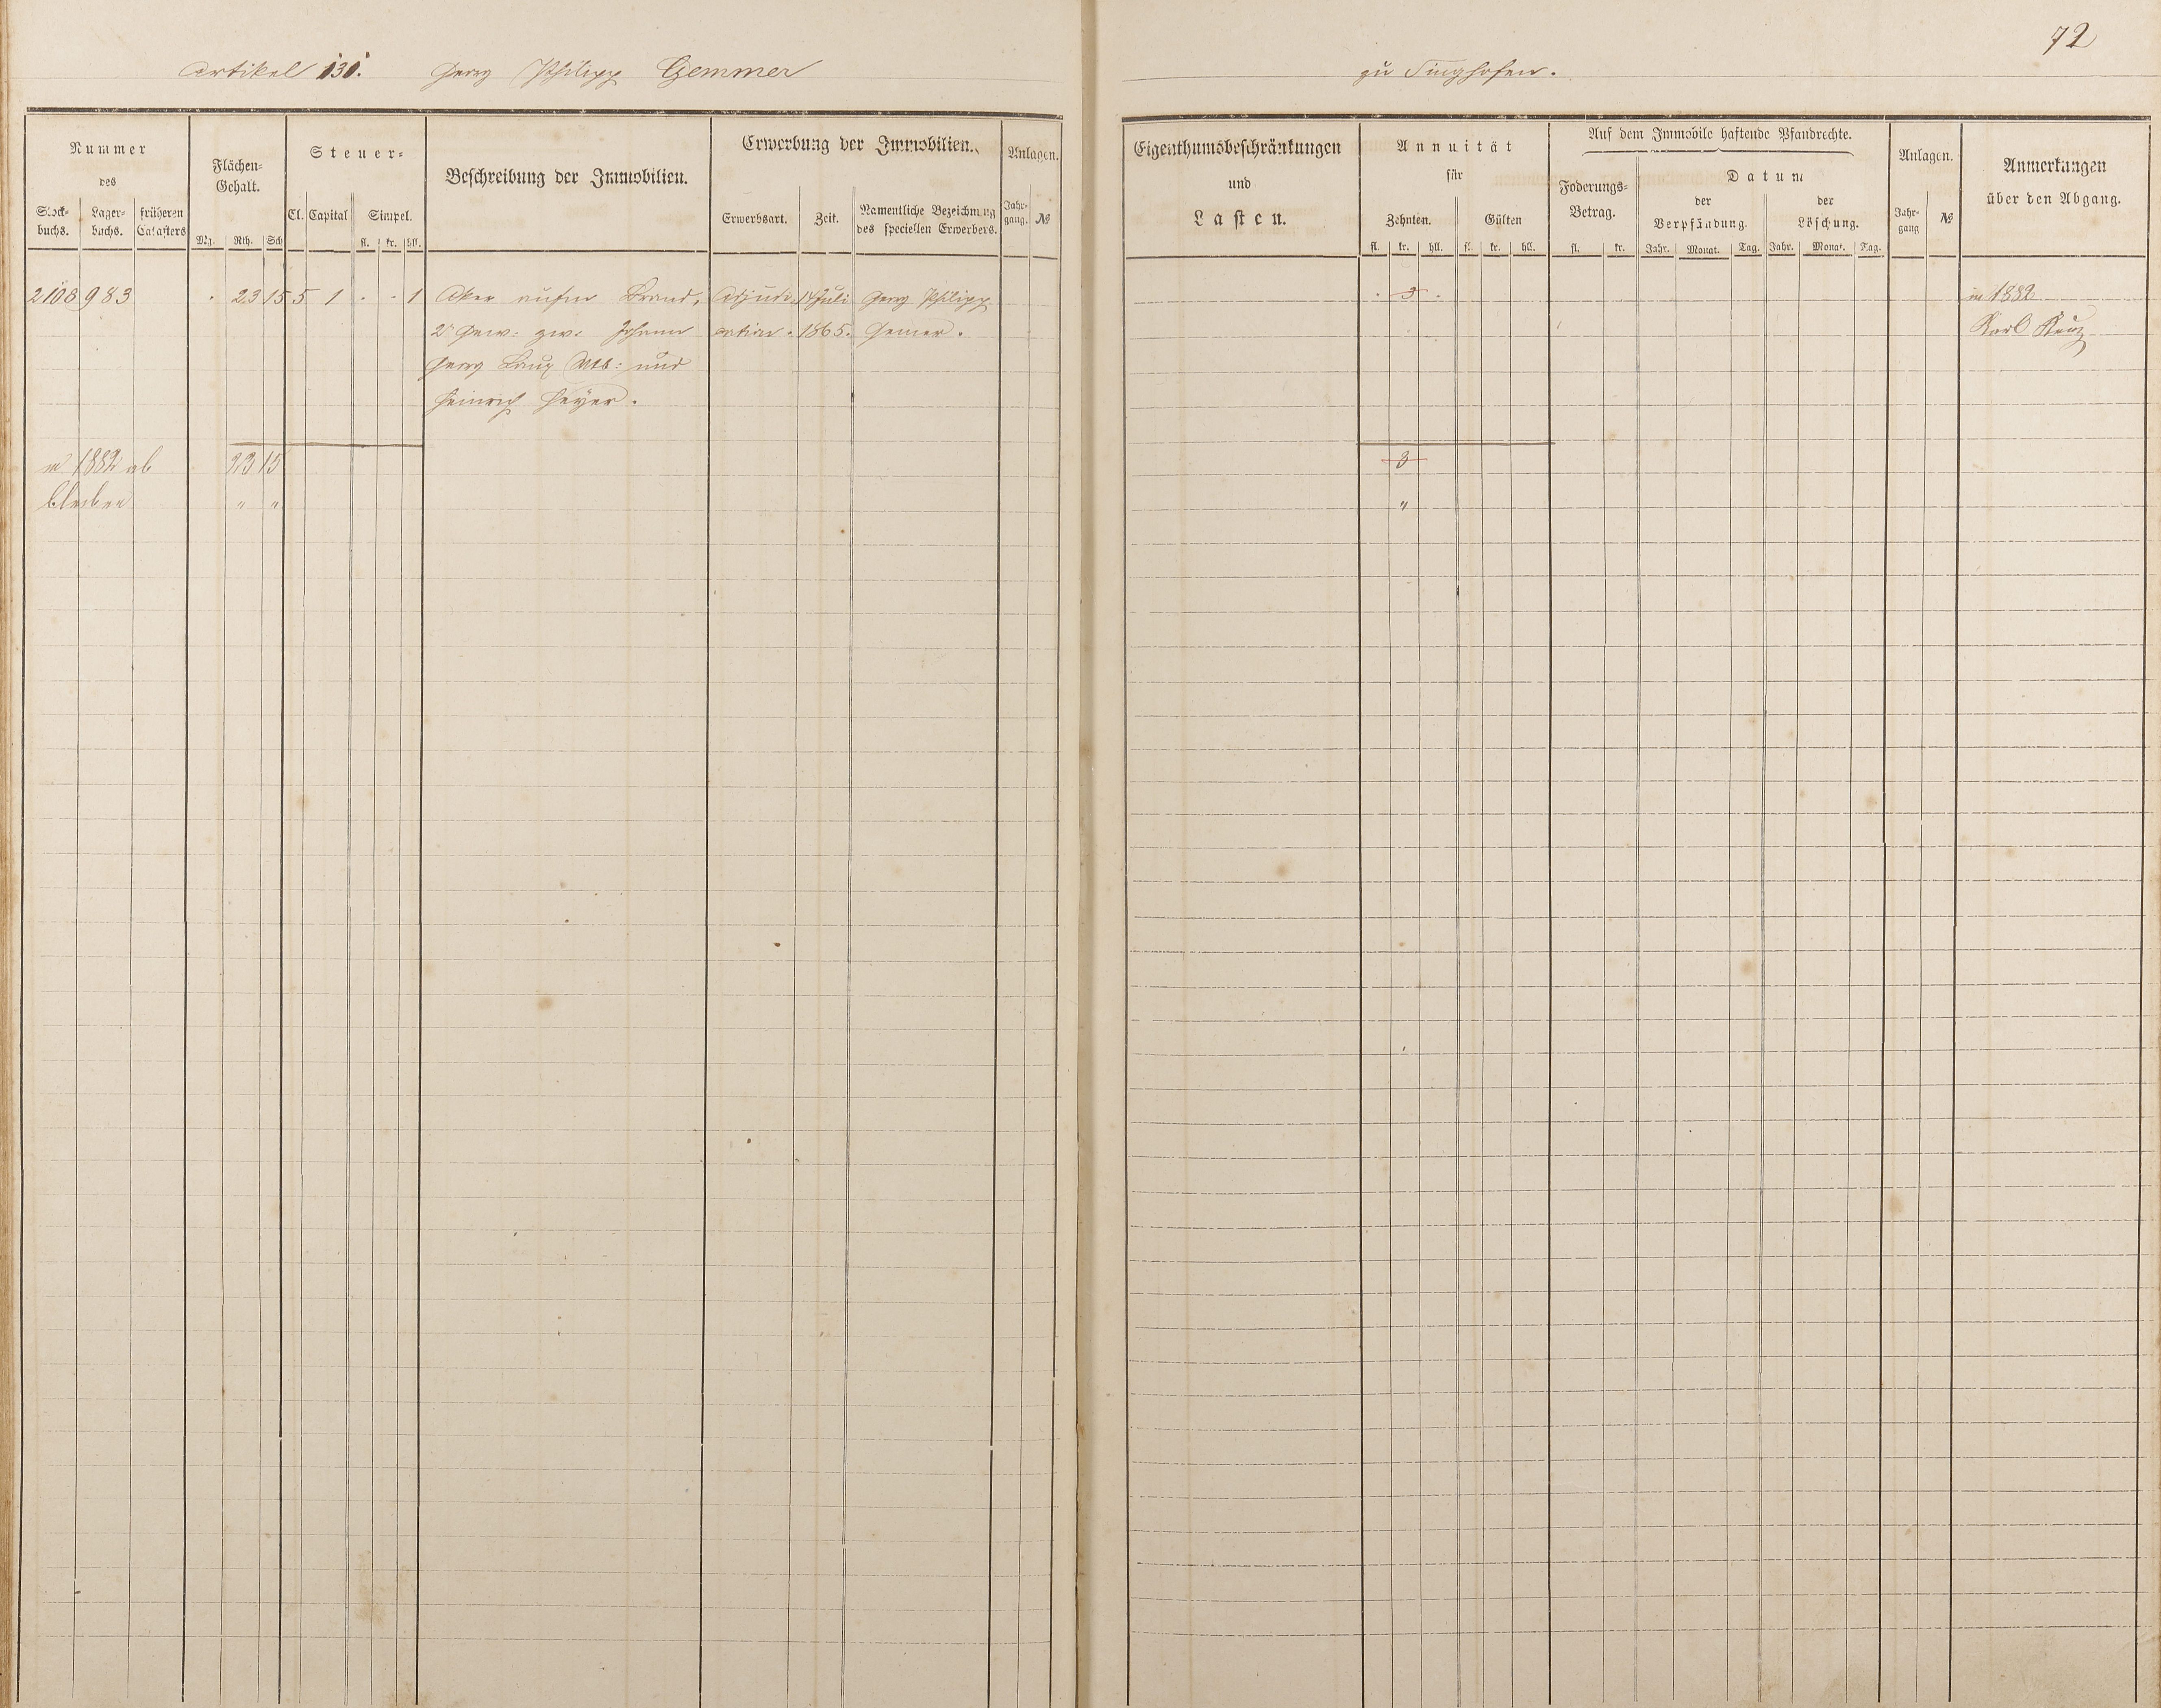 72
Artikel 131. Georg Philipp Gemmer zu Singhofen.
Nummer des
Stock-buchs. Lager-buchs. früheren Catasters
Flächen-Gehalt.
Mg. Rth. Sch
Steuer-
Cl. Capital Simpel.
fl. kr. hll.
Beschreibung der Immobilien.
Erwerbung der Immobilien.
Erwerbsart. Zeit. Namentliche Bezeichnung des speciellen Erwerbers.
Anlagen.
Jahr-gang. №
Eigenthumsbeschränkungen
und
Lasten.
Annuität
für
Zehnten. Gülten
fl. kr. hll. fl. kr. hll.
Auf dem Immobile haftende Pfandrechte.
Foderungs-Betrag.
fl. kr.
Datum
der Verpfändung. der Löschung.
Jahr. Monat. Tag. Jahr. Monat. Tag.
Anlagen.
Jahr-gang №
Anmerkungen
über den Abgang.
2108 983 . 23 15 5 1 . . 1 Aker aufm Brand, Adjudi- 14 Juli Georg Philipp . 3 . in 1882
2r Gew. zw. Johann cation. 1865. Gemer. Karl
Georg und
Heinrich Heyer.
in 1882 ab 23 15 3
bleiben " " "